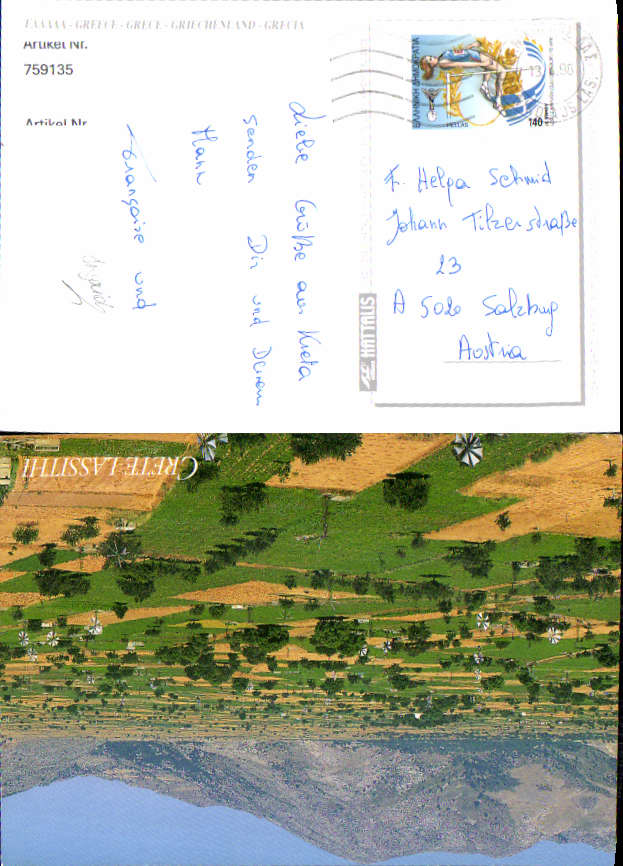 ΕΛΛΑΔΑ - GREECE - GRECE - GRIECHENLAND - GRECIA
Artikel Nr.
759135
Artikel Nr.
Liebe Grüße aus Kreta
senden Dir und Deinem
Mann
Françoise und
ΕΛΛΗΝΙΚΗ ΔΗΜΟΚΡΑΤΙΑ
HELLAS
140
F. Helga Schmid
Johann Tilzerstraße
23
A 5020 Salzburg
Austria
HAITALIS
CRETE LASSITHI